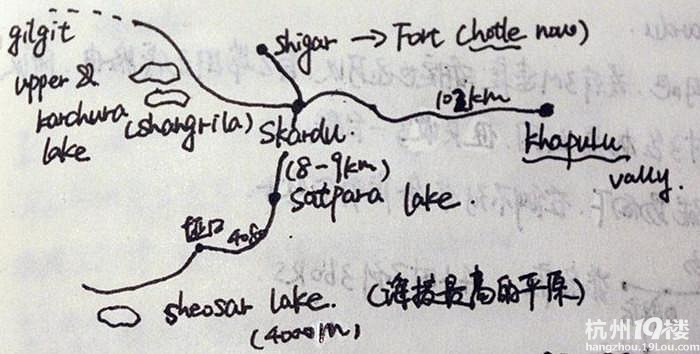 gilgit
shigar → Fort (hotle now)
upper &
karchura
lake
(shangrila)
Skardu.
102km
khapulu
vally.
(8-9km)
Satpara lake.
垭口
4080
sheosar lake.
(4000m)
(海拔最高的平原)
杭州19楼
hangzhou.19lou.com